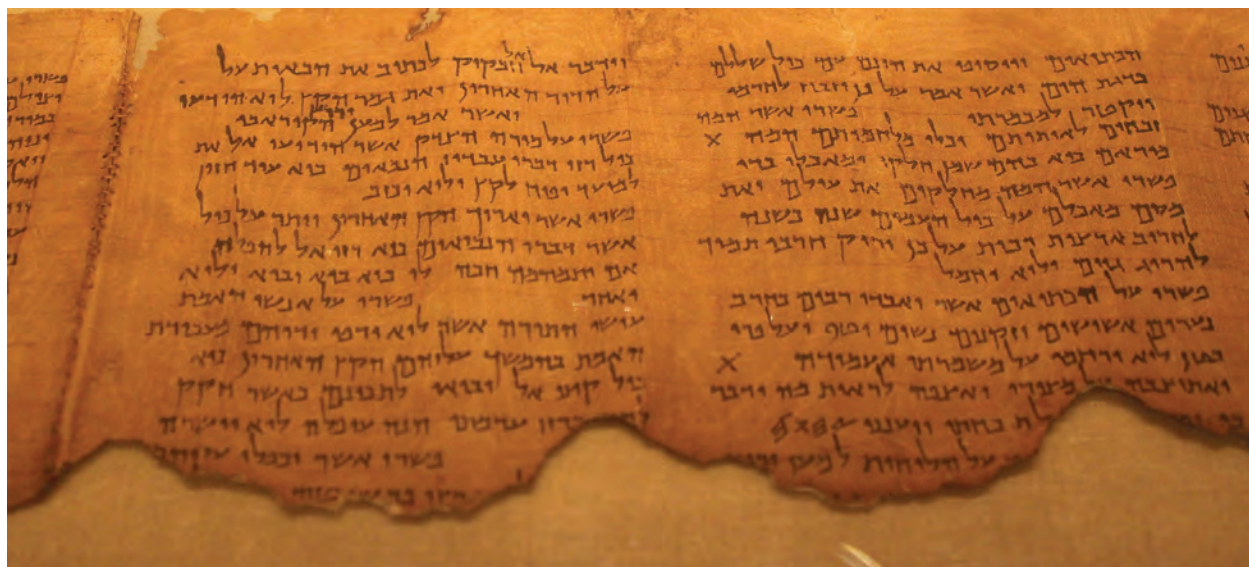 הכתיאים ויוסיפו את הונם עם כול שללם
כדגת הים ואשר אמר על כן יזבח לחרמו
ויקטר למכמרתו פשרו אשר המה
זבחים לאותותם וכלי מלחמותם המה X
מוראם כיא בהם שמן חלקו ומאכלו ברי
פשרו אשר המה מחלקים את עולם ואת
מסם מאכלם על כול העמים שנה בשנה
לחריב ארצות רבות על כן יריק חרבו תמיד
להרוג גוים ולוא יחמל
פשרו על הכתיאים אשר יאבדו רבים בחרב
נערים אשישים וזקנים נשים וטף ועל פרי
בטן לוא ירחמו על משמרתי אעמודה X
ואתיצבה על מצורי ואצפה לראות מה ידבר
בי ויענני 𐤉𐤄𐤅𐤄
על הלוחות למען
וידבר אל אל חבקוק לכתוב את הבאות על
על הדור האחרון ואת גמר הקץ לוא הודעו
ואשר אמר למען ירוץ הקורא בו
פשרו על מורה הצדק אשר הודיעו אל את
כול רזי דברי עבדיו הנבאים כיא עוד חזון
למועד יפיח לקץ ולוא יכזב
פשרו אשר יארוך הקץ האחרון ויתר על כול
אשר דברו הנביאים כיא רזי אל להפלה
אם יתמהמה חכה לו כיא בוא יבוא ולוא
יאחר פשרו על אנשי האמת
עושי התורה אשר לוא ירפו ידיהם מעבודת
האמת בהמשך עליהם הקץ האחרון כיא
כול קיצי אל יבואו לתכונם כאשר חקק
ערמתו הנה עופלה לוא יושרה
פשרו אשר יכפלו עליהם